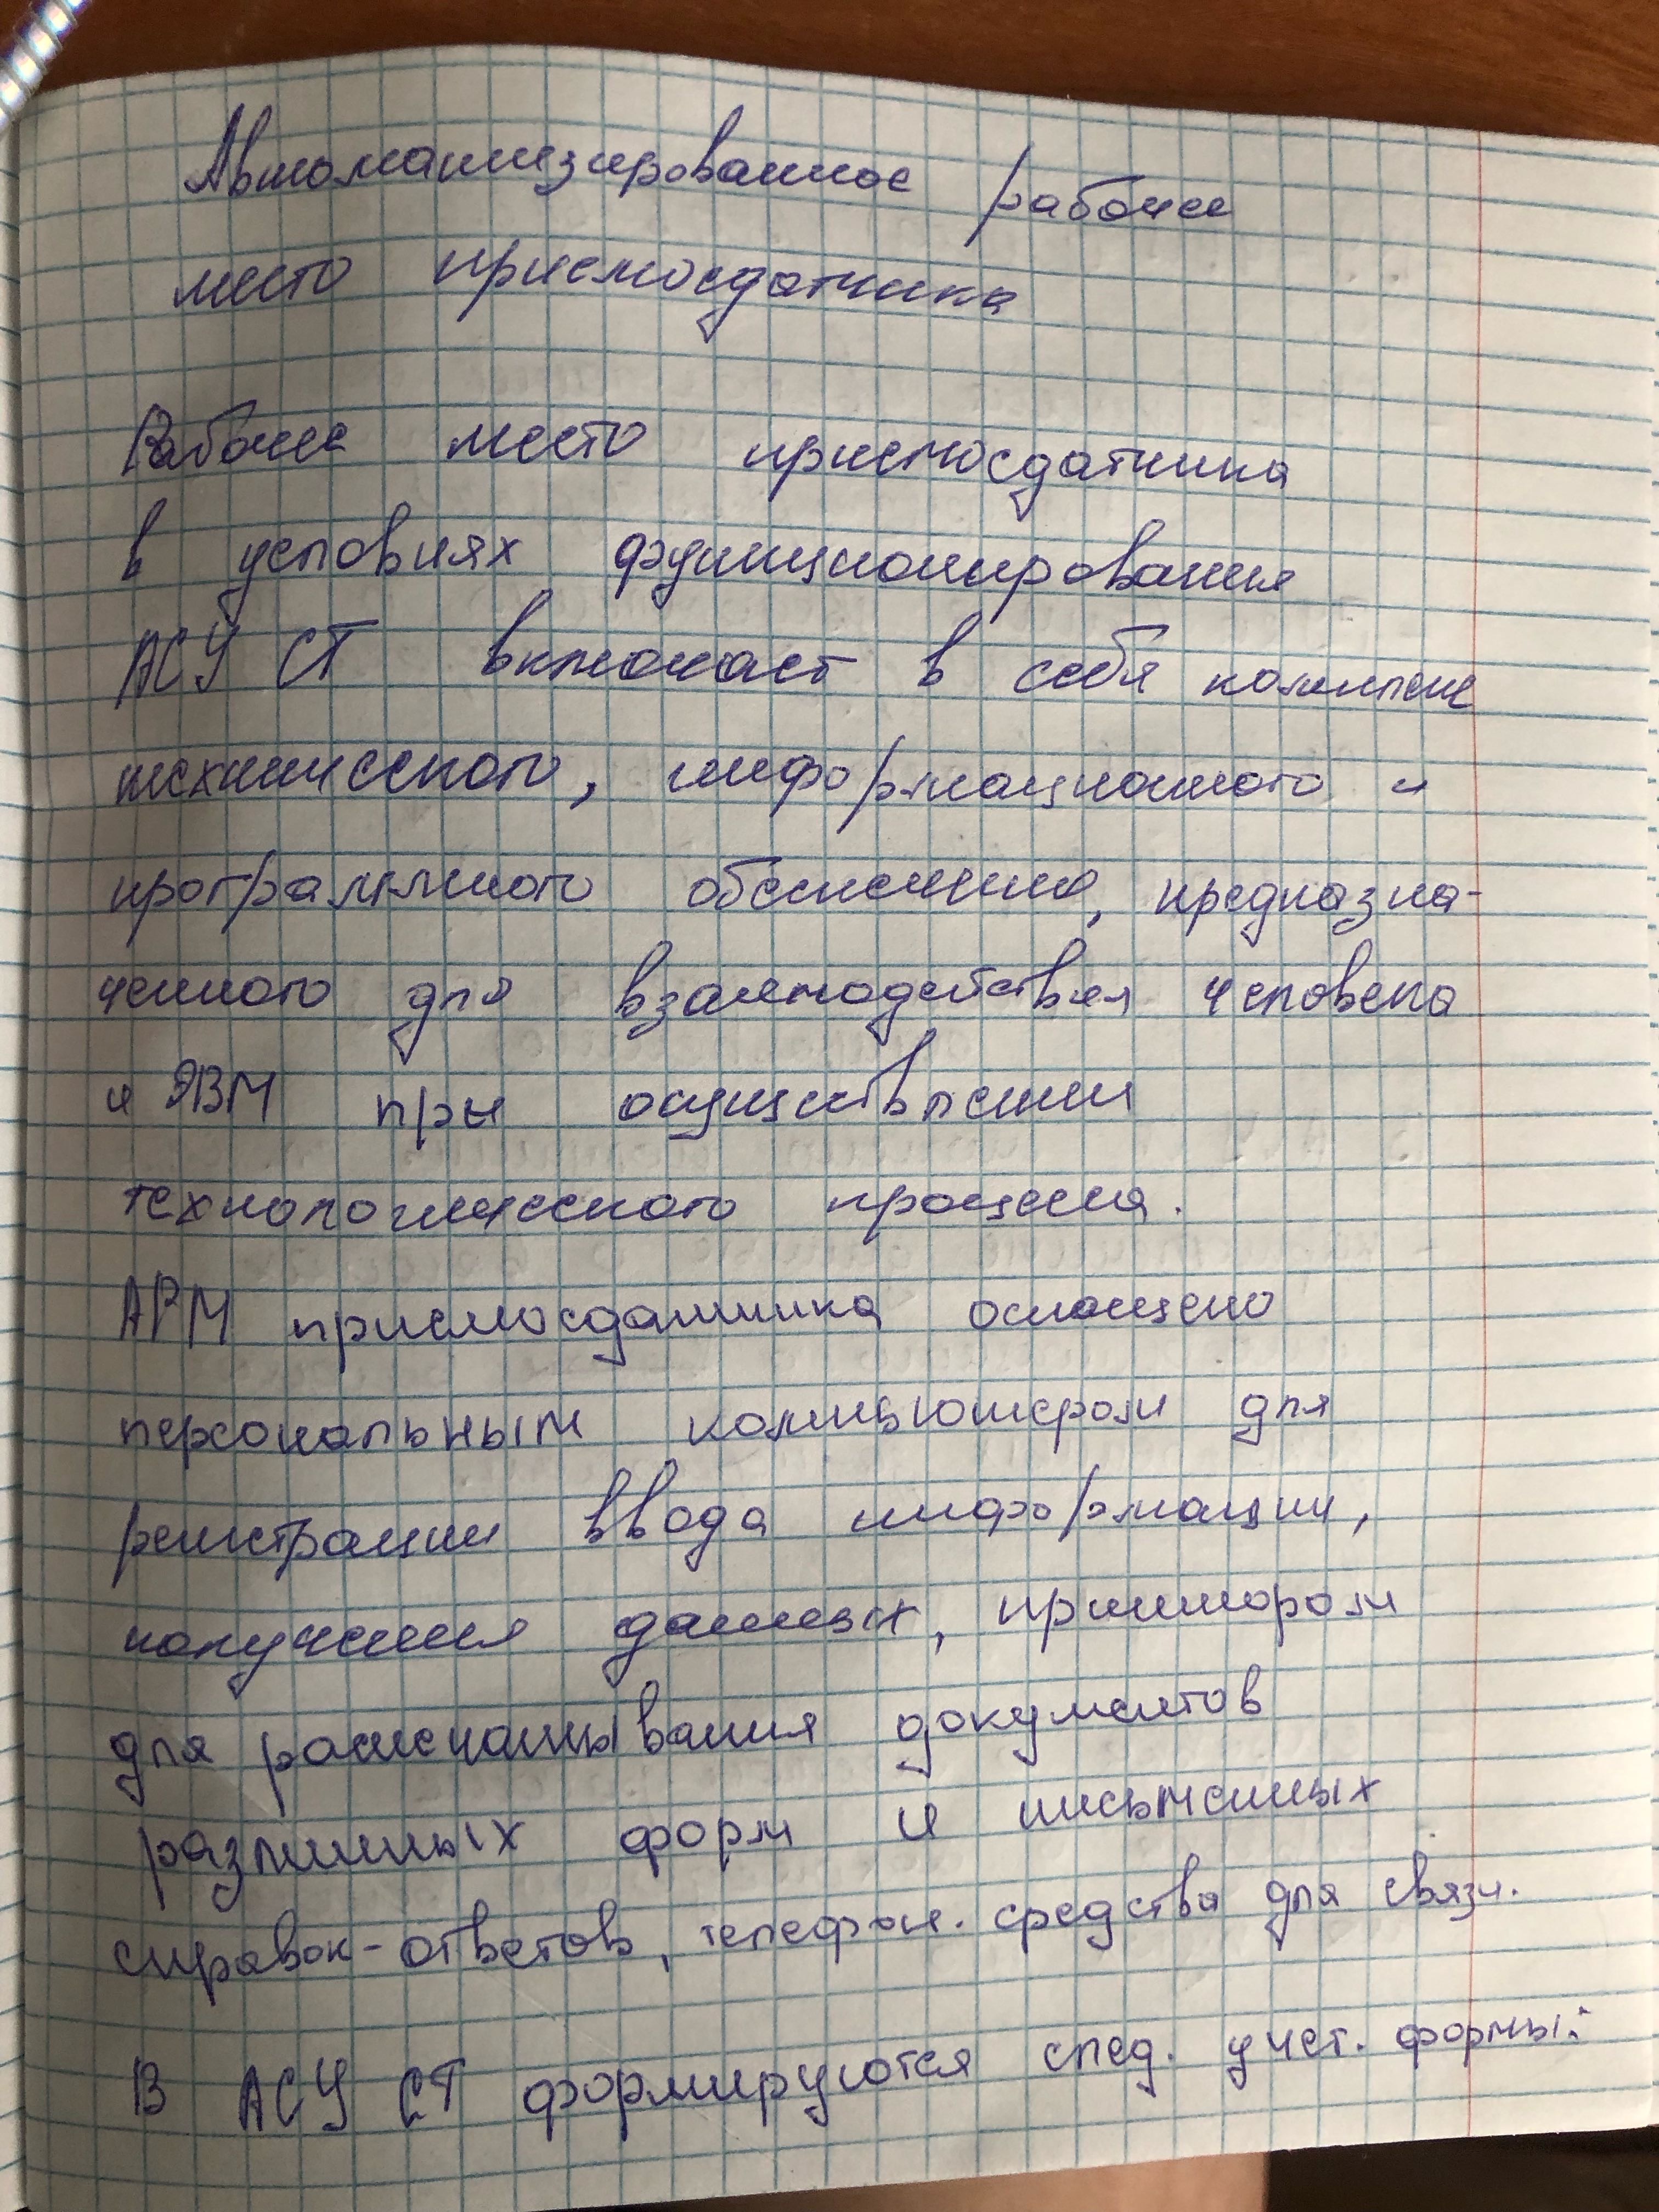 Автоматизированное рабочее
место приемосдатчика
Рабочее место приемосдатчика
в условиях функционирования
АСУ СТ включает в себя комплекс
технического, информационного и
программного обеспечения, предназна-
ченного для взаимодействия человека
и ЭВМ при осуществлении
технологического процесса.
АРМ приемосдатчика оснащено
персональным компьютером для
регистрации ввода информации,
получения данных, принтером
для распечатывания документов
различных форм и письменных
справок-ответов, телефон. средства для связи.
В АСУ СТ формируются след. учет. формы: